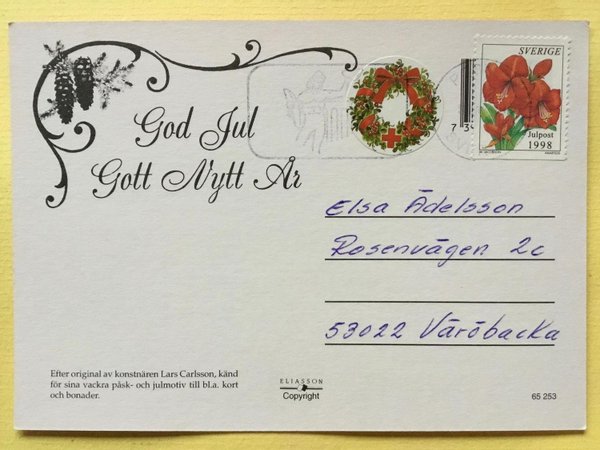 SVERIGE
Julpost
1998
God Jul
Gott Nytt År
Elsa Ädelsson
Rosenvägen 2c
53022 Väröbacka
Efter original av konstnären Lars Carlsson, känd
för sina vackra påsk- och julmotiv till bl.a. kort
och bonader.
ELIASSON
Copyright
65 253